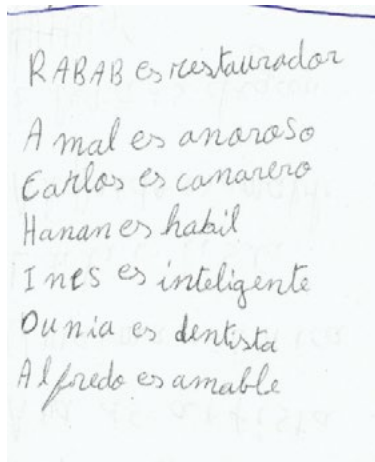 RABAB es restaurador
Amal es anoroso
Carlos es canarero
Hanan es habil
Ines es inteligente
Dunia es dentista
Alfredo es amable